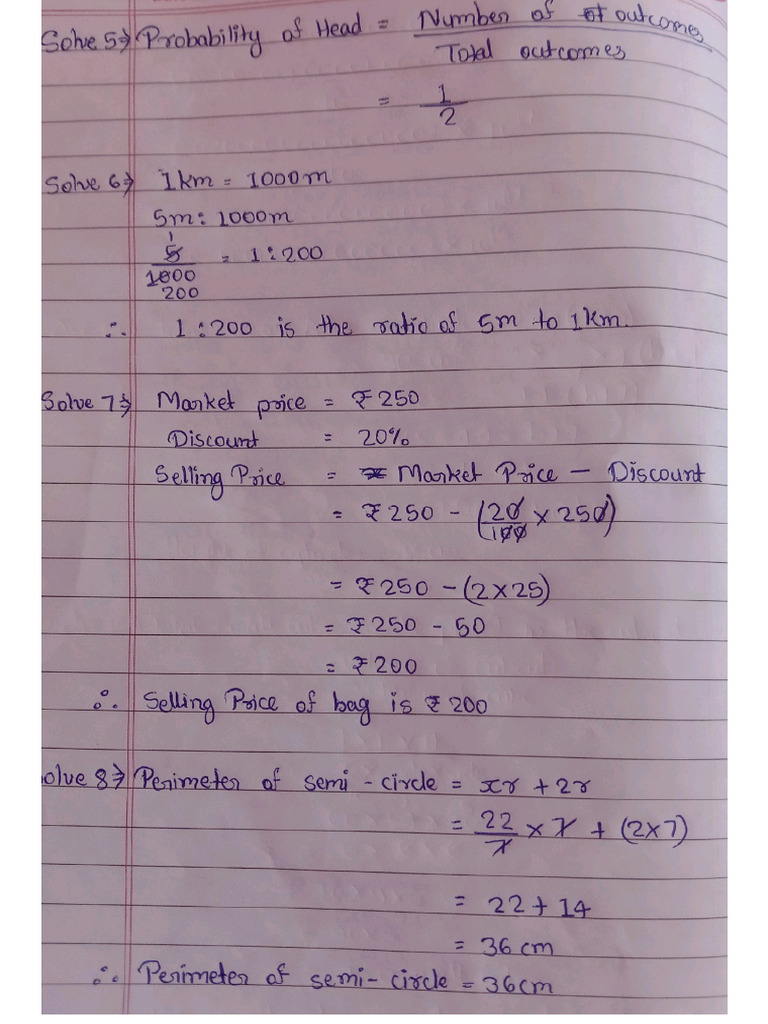 Solve 5⇒ Probability of Head = Number of outcomes
Total outcomes
= 1/2
Solve 6⇒ 1km = 1000m
5m : 1000m
5/1000 = 1:200
1
200
∴ 1:200 is the ratio of 5m to 1km.
Solve 7⇒ Market price = ₹250
Discount = 20%
Selling Price = Market Price - Discount
= ₹250 - (20/100 × 250)
= ₹250 - (2×25)
= ₹250 - 50
= ₹200
∴ Selling Price of bag is ₹200
olve 8⇒ Perimeter of semi-circle = xr + 2r
= 22/7 × 7 + (2×7)
= 22 + 14
= 36cm
∴ Perimeter of semi-circle = 36cm